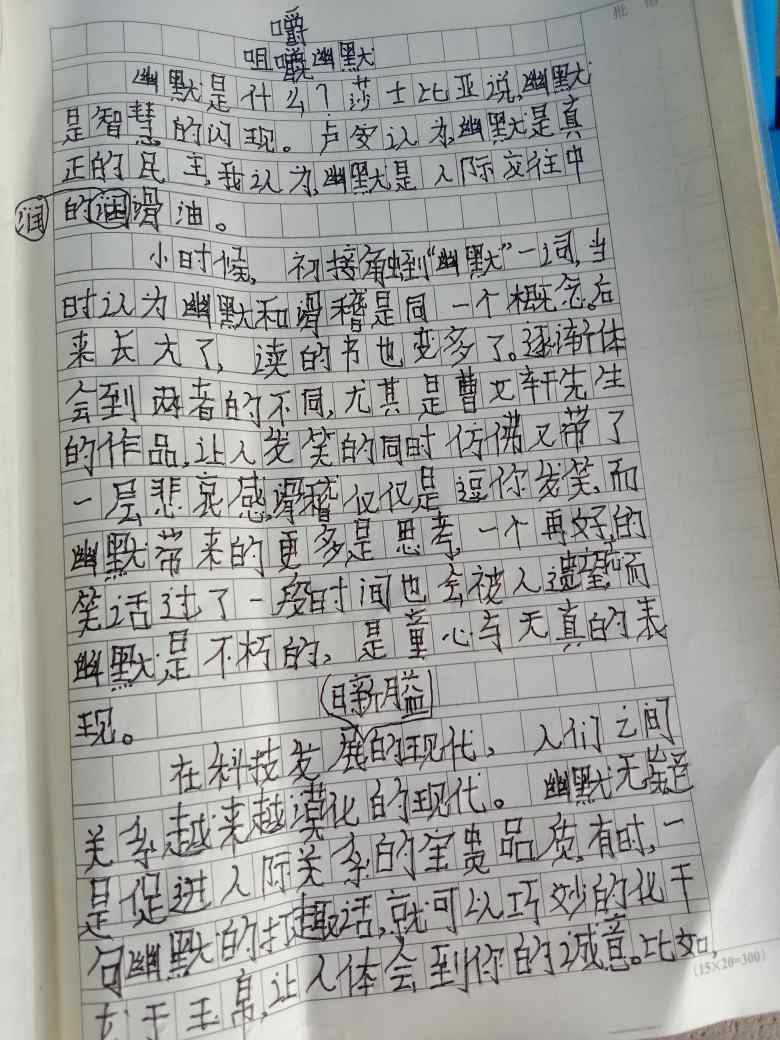 批
嚼
咀嚼幽默
幽默是什么？莎士比亚说，幽默
是智慧的闪现。卢安认为，幽默是真
正的民主，我认为，幽默是人际交往中
润
的润滑油。
小时候，初接触到“幽默”一词，当
时认为幽默和滑稽是同一个概念。后
来长大了，读的书也变多了。逐渐体
会到两者的不同，尤其是曹文轩先生
的作品，让人发笑的同时仿佛又带了
一层悲哀感，滑稽仅仅是逗你发笑，而
幽默带来的更多是思考，一个再好的
笑话过了一段时间也会被人遗忘，而
幽默是不朽的，是童心与天真的表
现。
(日新月益)
在科技发展的现代，人们之间
关系越来越漠化的现代。幽默无疑
是促进人际关系的宝贵品质，有时，一
句幽默的打趣话，就可以巧妙的化干
戈于玉帛，让人体会到你的诚意。比如，
(15×20=300)